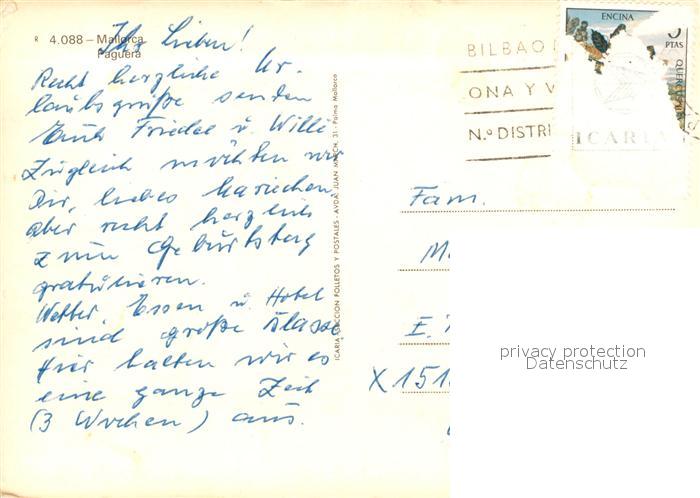 R 4.088 – Mallorca
Paguera
Ihr Lieben!
Recht herzliche Ur-
laubsgrüße senden
Euch Friedel u. Willi
Zugleich möchten wir
Dir, liebes Mariechen
aber recht herzlich
zum Geburtstag
gratulieren.
Wetter, Essen u. Hotel
sind große Klasse
Hier halten wir es
eine ganze Zeit
(3 Wochen) aus.
ICARIA SECCION FOLLETOS Y POSTALES - AVDA. JUAN MARCH, 31 - Palma Mallorca
BILBAO
ONA Y V
N.º DISTRI
ENCINA
PTAS
QUERCUS
ICARIA
Fam.
M
E.
X 151
privacy protection
Datenschutz